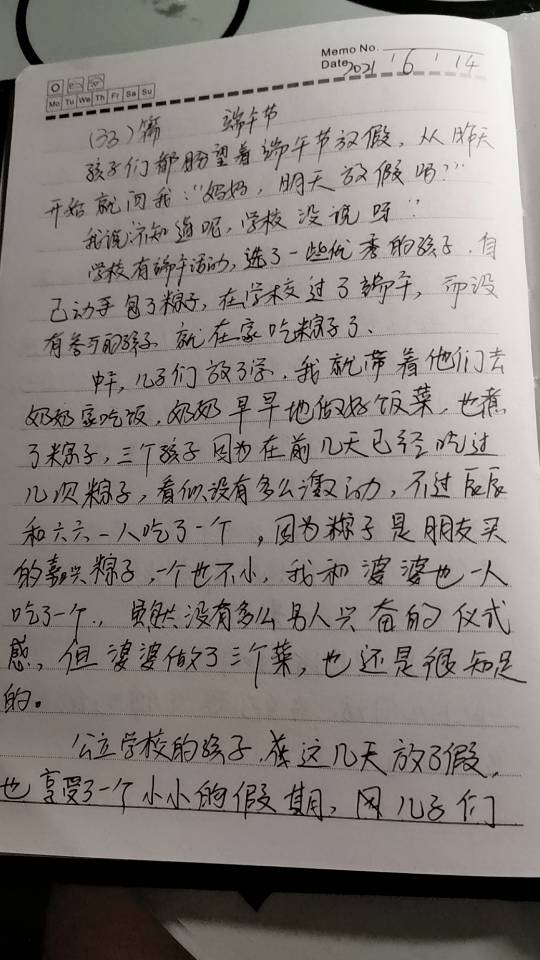 Memo No.
Date 2021 '6 '14
Mo Tu We Th Fr Sa Su
(33)篇 端午节
孩子们都盼望着端午节放假，从昨天
开始就问我："妈妈，明天放假吗？"
我说不知道呢，学校没说呀
学校有端午活动，选了一些优秀的孩子，自
己动手包了粽子，在学校过了端午，而没
有参与的孩子就在家吃粽子了、
中午，儿子们放了学，我就带着他们去
奶奶家吃饭，奶奶早早地做好饭菜，也煮
了粽子，三个孩子因为在前几天已经吃过
几次粽子，看似没有多么激动，不过辰辰
和六六一人吃了一个，因为粽子是朋友买
的嘉兴粽子，一个也不小，我和婆婆也一人
吃了一个，虽然没有多么另人兴奋的仪式
感，但婆婆做了三个菜，也还是很知足
的。
公立学校的孩子，在这几天放了假，
也享受了一个小小的假期，因儿子们